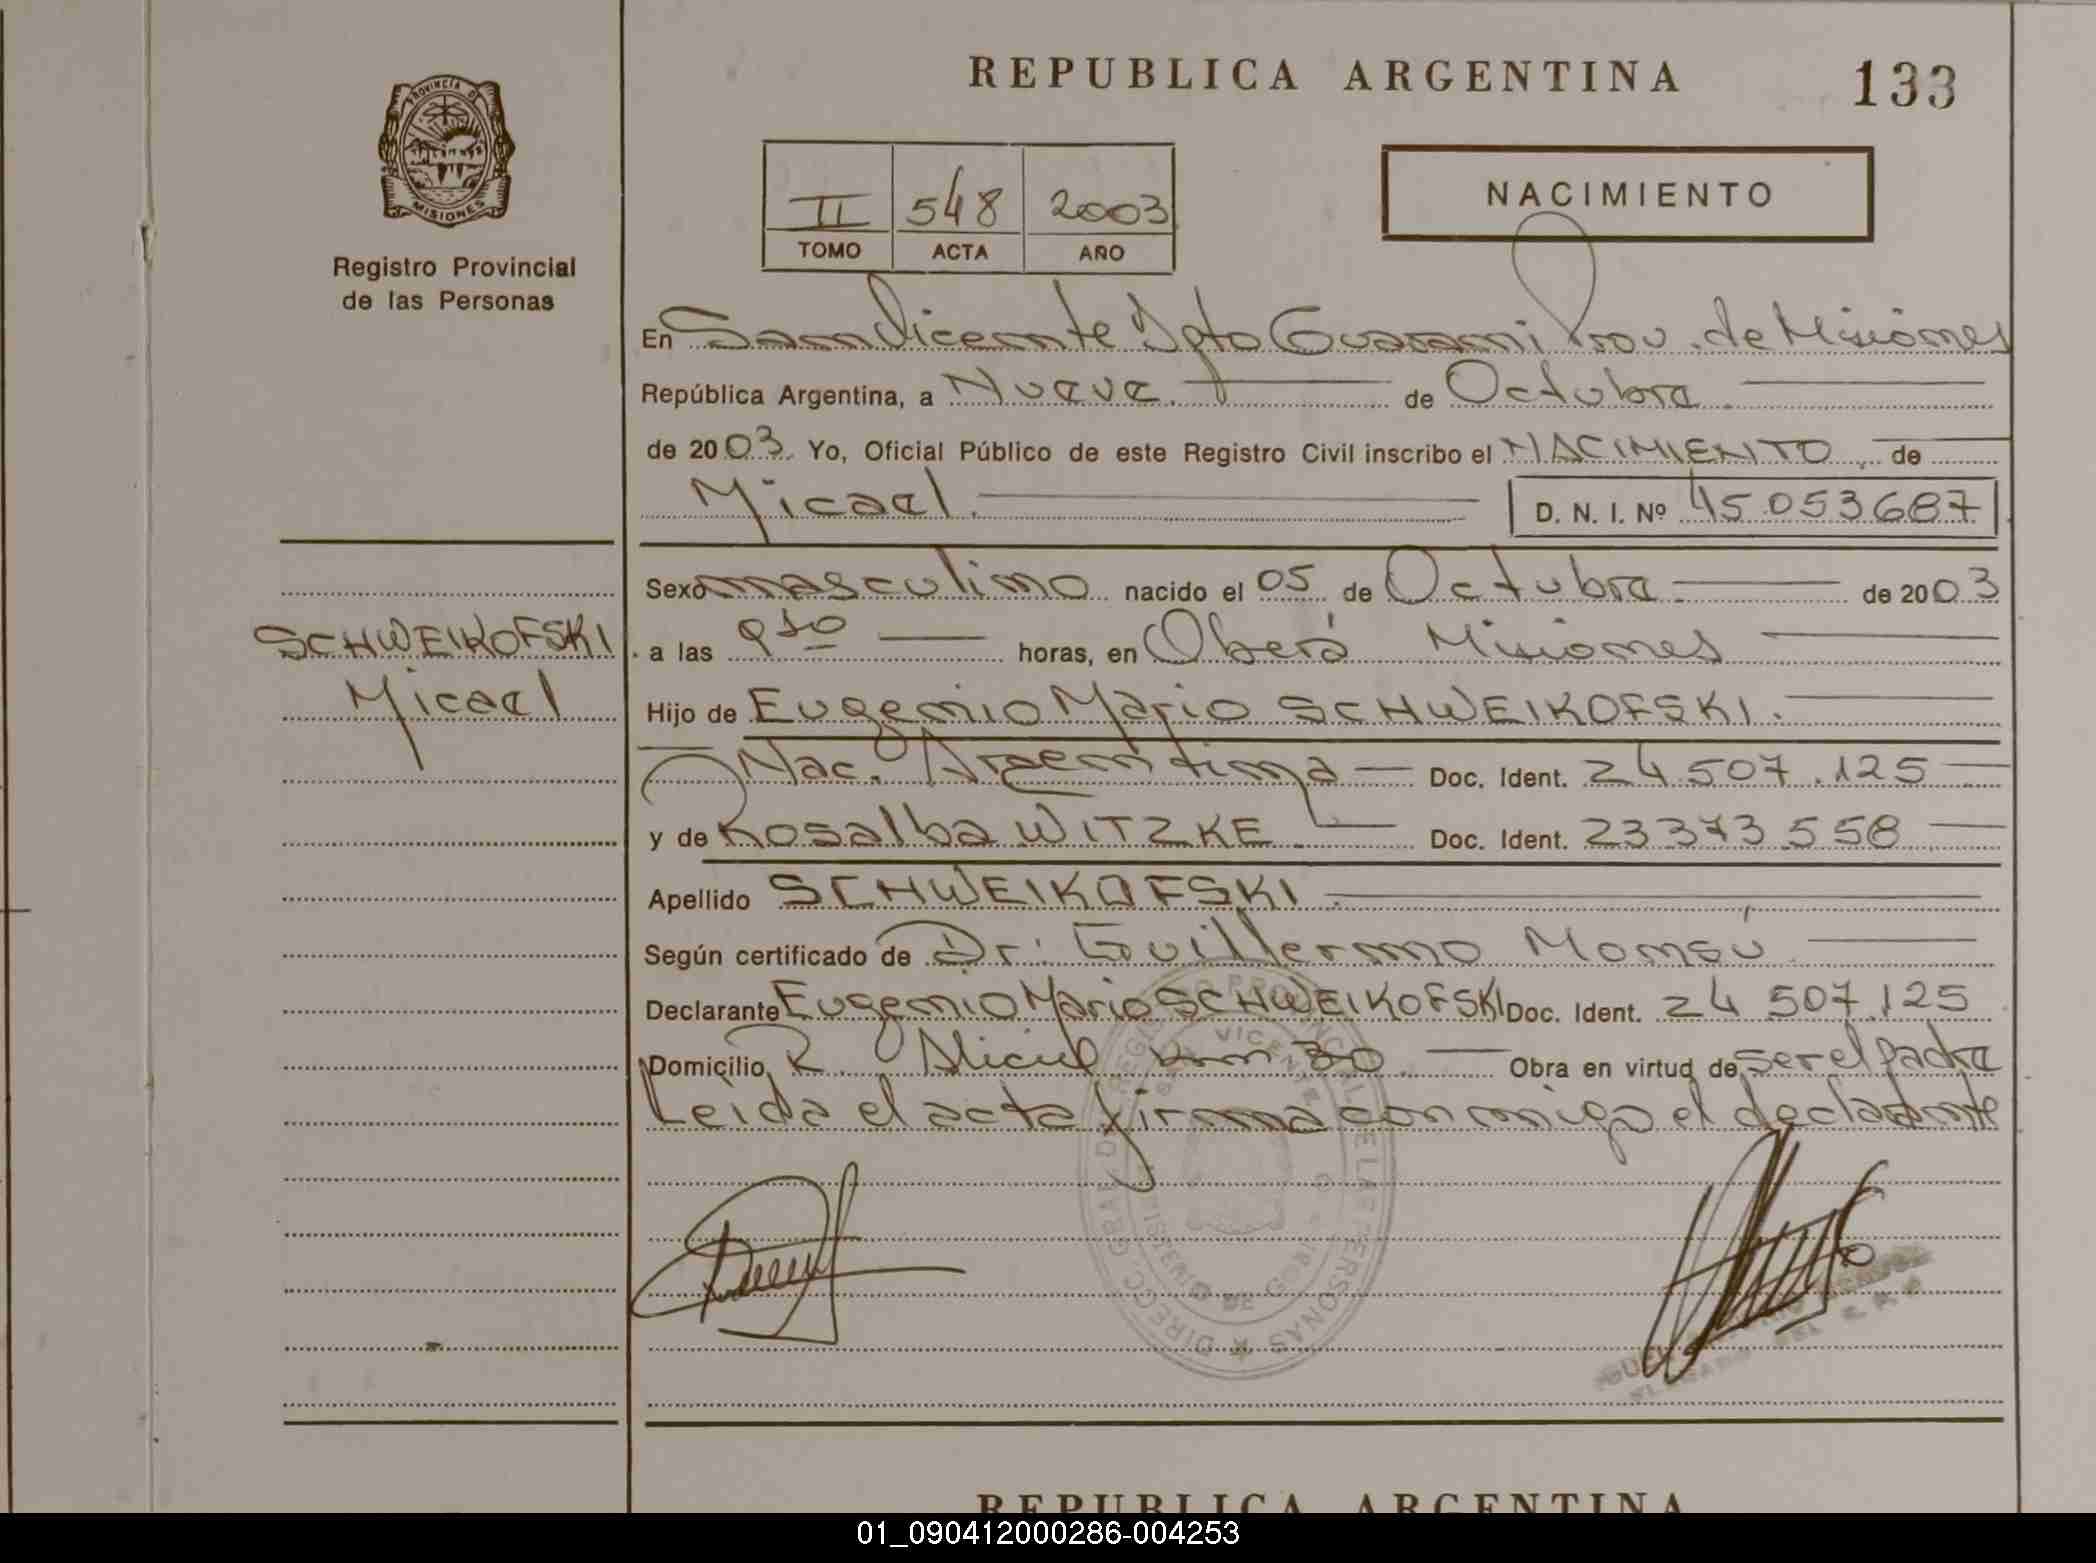 REPUBLICA ARGENTINA
133
PROVINCIA DE
MISIONES
Registro Provincial
de las Personas
II 548 2003
TOMO ACTA AÑO
NACIMIENTO
En San Vicente Dpto Guarani Prov. de Misiones
República Argentina, a Nueve de Octubre
de 2003 Yo, Oficial Público de este Registro Civil inscribo el NACIMIENTO de
Micael D. N. I. Nº 45.053687
Sexo masculino nacido el 05 de Octubre de 2003
SCHWEIKOFSKI
Micael
a las 9 10 horas, en Oberá Misiones
Hijo de Eugenio Mario SCHWEIKOFSKI.
Nac. Argentina Doc. Ident. 24 507.125
y de Rosalba WITZKE Doc. Ident. 23373558
Apellido SCHWEIKOFSKI
Según certificado de Dr. Guillermo Monsú
Declarante Eugenio Mario SCHWEIKOFSKI Doc. Ident. 24 507.125
Domicilio R. Aliciel km 30 Obra en virtud de ser el padre
Leida el acta firma conmigo el declarante
REPUBLICA ARGENTINA
01_090412000286-004253